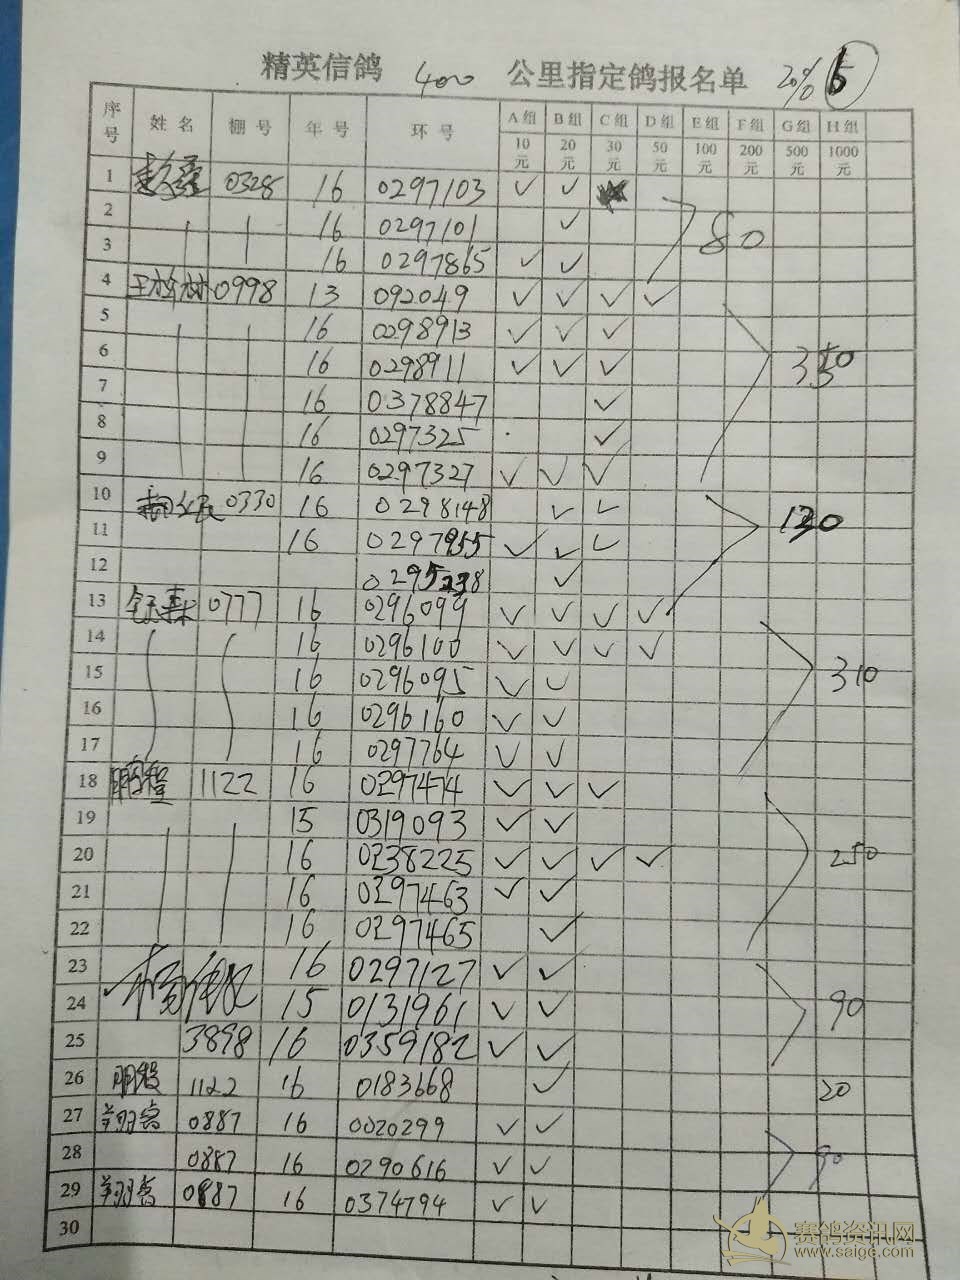 精英信鸽 400 公里指定鸽报名单 20% 5
序号 姓名 棚号 年号 环号 A组 B组 C组 D组 E组 F组 G组 H组
10元 20元 30元 50元 100元 200元 500元 1000元
1 0328 16 0297103 ✓ ✓
2 16 0297101 ✓ 80
3 16 0297865 ✓ ✓
4 0998 13 092049 ✓ ✓ ✓ ✓
5 16 0298913 ✓ ✓ ✓
6 16 0298911 ✓ ✓ ✓ 350
7 16 0378847 ✓
8 16 0297325 ✓
9 16 0297327 ✓ ✓ ✓
10 0330 16 0298148 ✓ ✓
11 16 0297955 ✓ ✓ ✓ 130
12 0295238 ✓
13 0777 16 0296099 ✓ ✓ ✓ ✓
14 16 0296100 ✓ ✓ ✓ ✓
15 16 0296095 ✓ ✓ 310
16 16 0296160 ✓ ✓
17 16 0297764 ✓ ✓
18 鹏程 1122 16 0297474 ✓ ✓ ✓
19 15 0319093 ✓ ✓
20 16 0238225 ✓ ✓ ✓ ✓ 250
21 16 0297463 ✓ ✓
22 16 0297465 ✓
23 16 0297127 ✓ ✓
24 15 0131961 ✓ ✓ 90
25 3898 16 0359182 ✓ ✓
26 1122 16 0183668 ✓ 20
27 0887 16 0020299 ✓ ✓
28 0887 16 0290616 ✓ ✓ 90
29 0887 16 0374794 ✓ ✓
30
赛鸽资讯网
www.saige.com